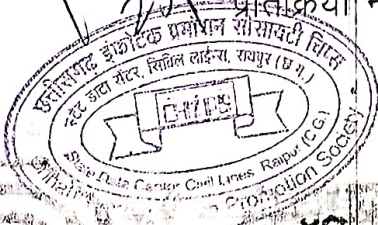 प्रतिक्रिया
छत्तीसगढ़ इंफोटेक प्रमोशन सोसायटी चिप्स
स्टेट डाटा सेंटर, सिविल लाईन्स, रायपुर (छ.ग.)
CHIPS
State Data Center Civil Lines, Raipur (C.G.)
Promotion Society